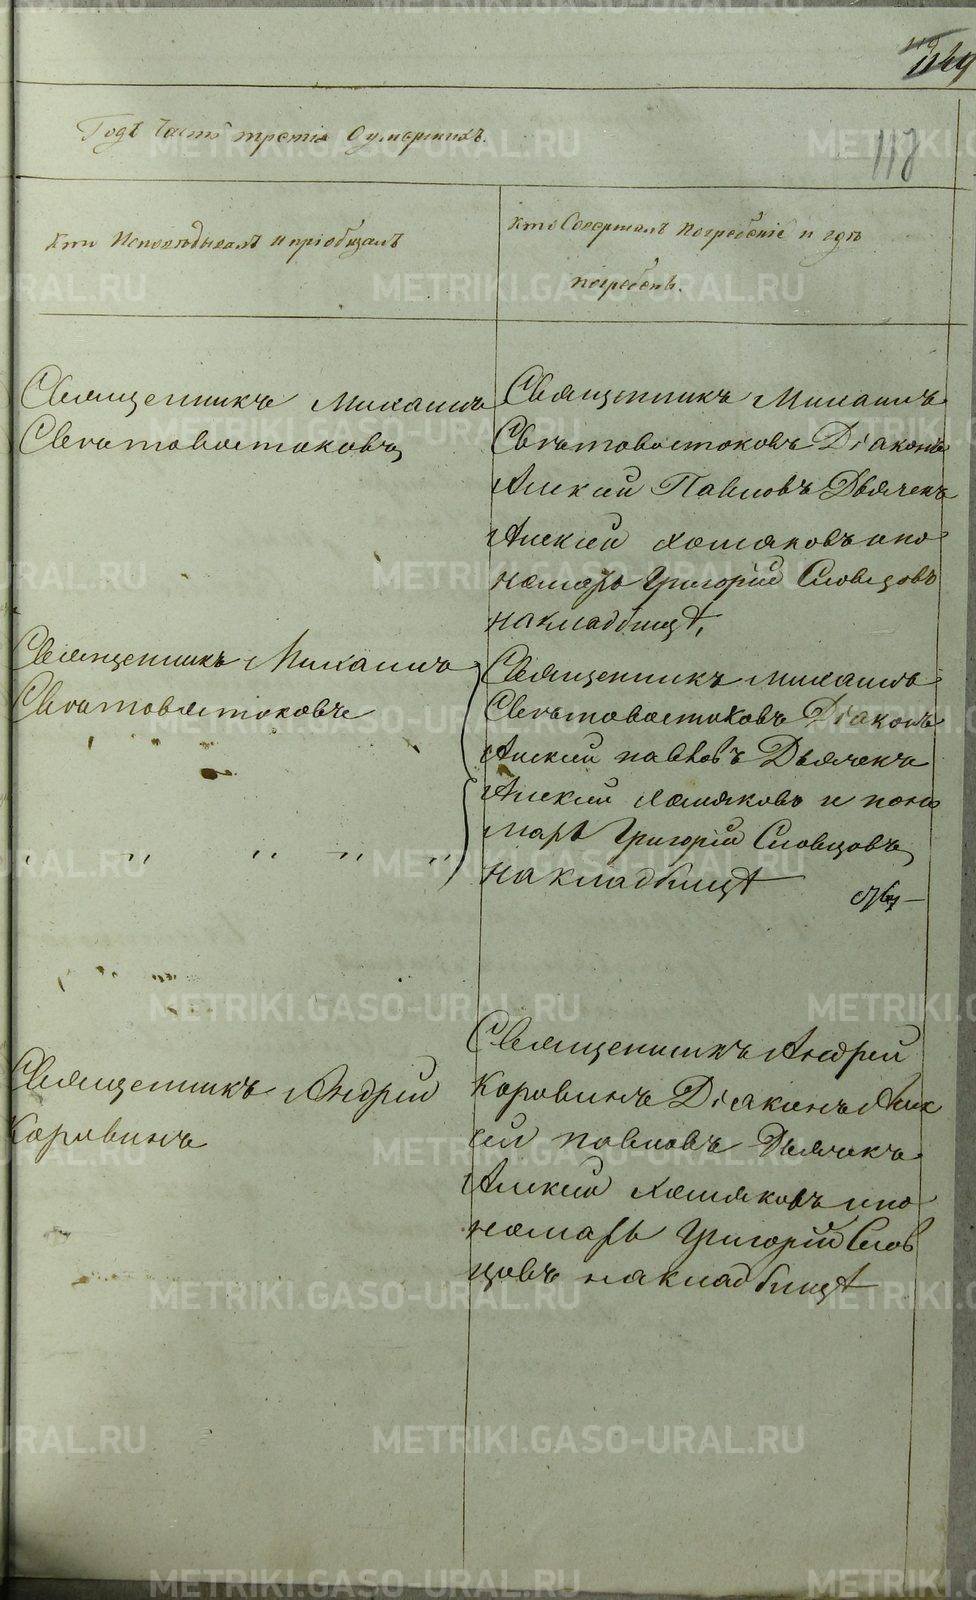 118
Годъ Часть третія О умершихъ.
Кто Исповѣдывалъ и пріобщалъ
Кто Совершалъ Погребеніе и гдѣ
погребенъ.
Священникъ Михаилъ
Святовостоковъ
Священникъ Михаилъ
Святовостоковъ Діаконъ
Алексій Павловъ Дьячекъ
Алексій Хомяковъ и по
номарь Григорій Словцовъ
на кладбищѣ,
Священникъ Михаилъ
Святовостоковъ
Священникъ Михаилъ
Святовостоковъ Діаконъ
Алексій павловъ Дьячекъ
Алексій Хомяковъ и поно
марь Григорій Словцовъ
на кладбищѣ
Священникъ Андрей
Коровинъ
Священникъ Андрей
Коровинъ Діаконъ Алек
сій павловъ Дьячекъ
Алексій Хомяковъ и по
номарь Григорій Слов
цовъ на кладбищѣ
METRIKI.GASO-URAL.RU